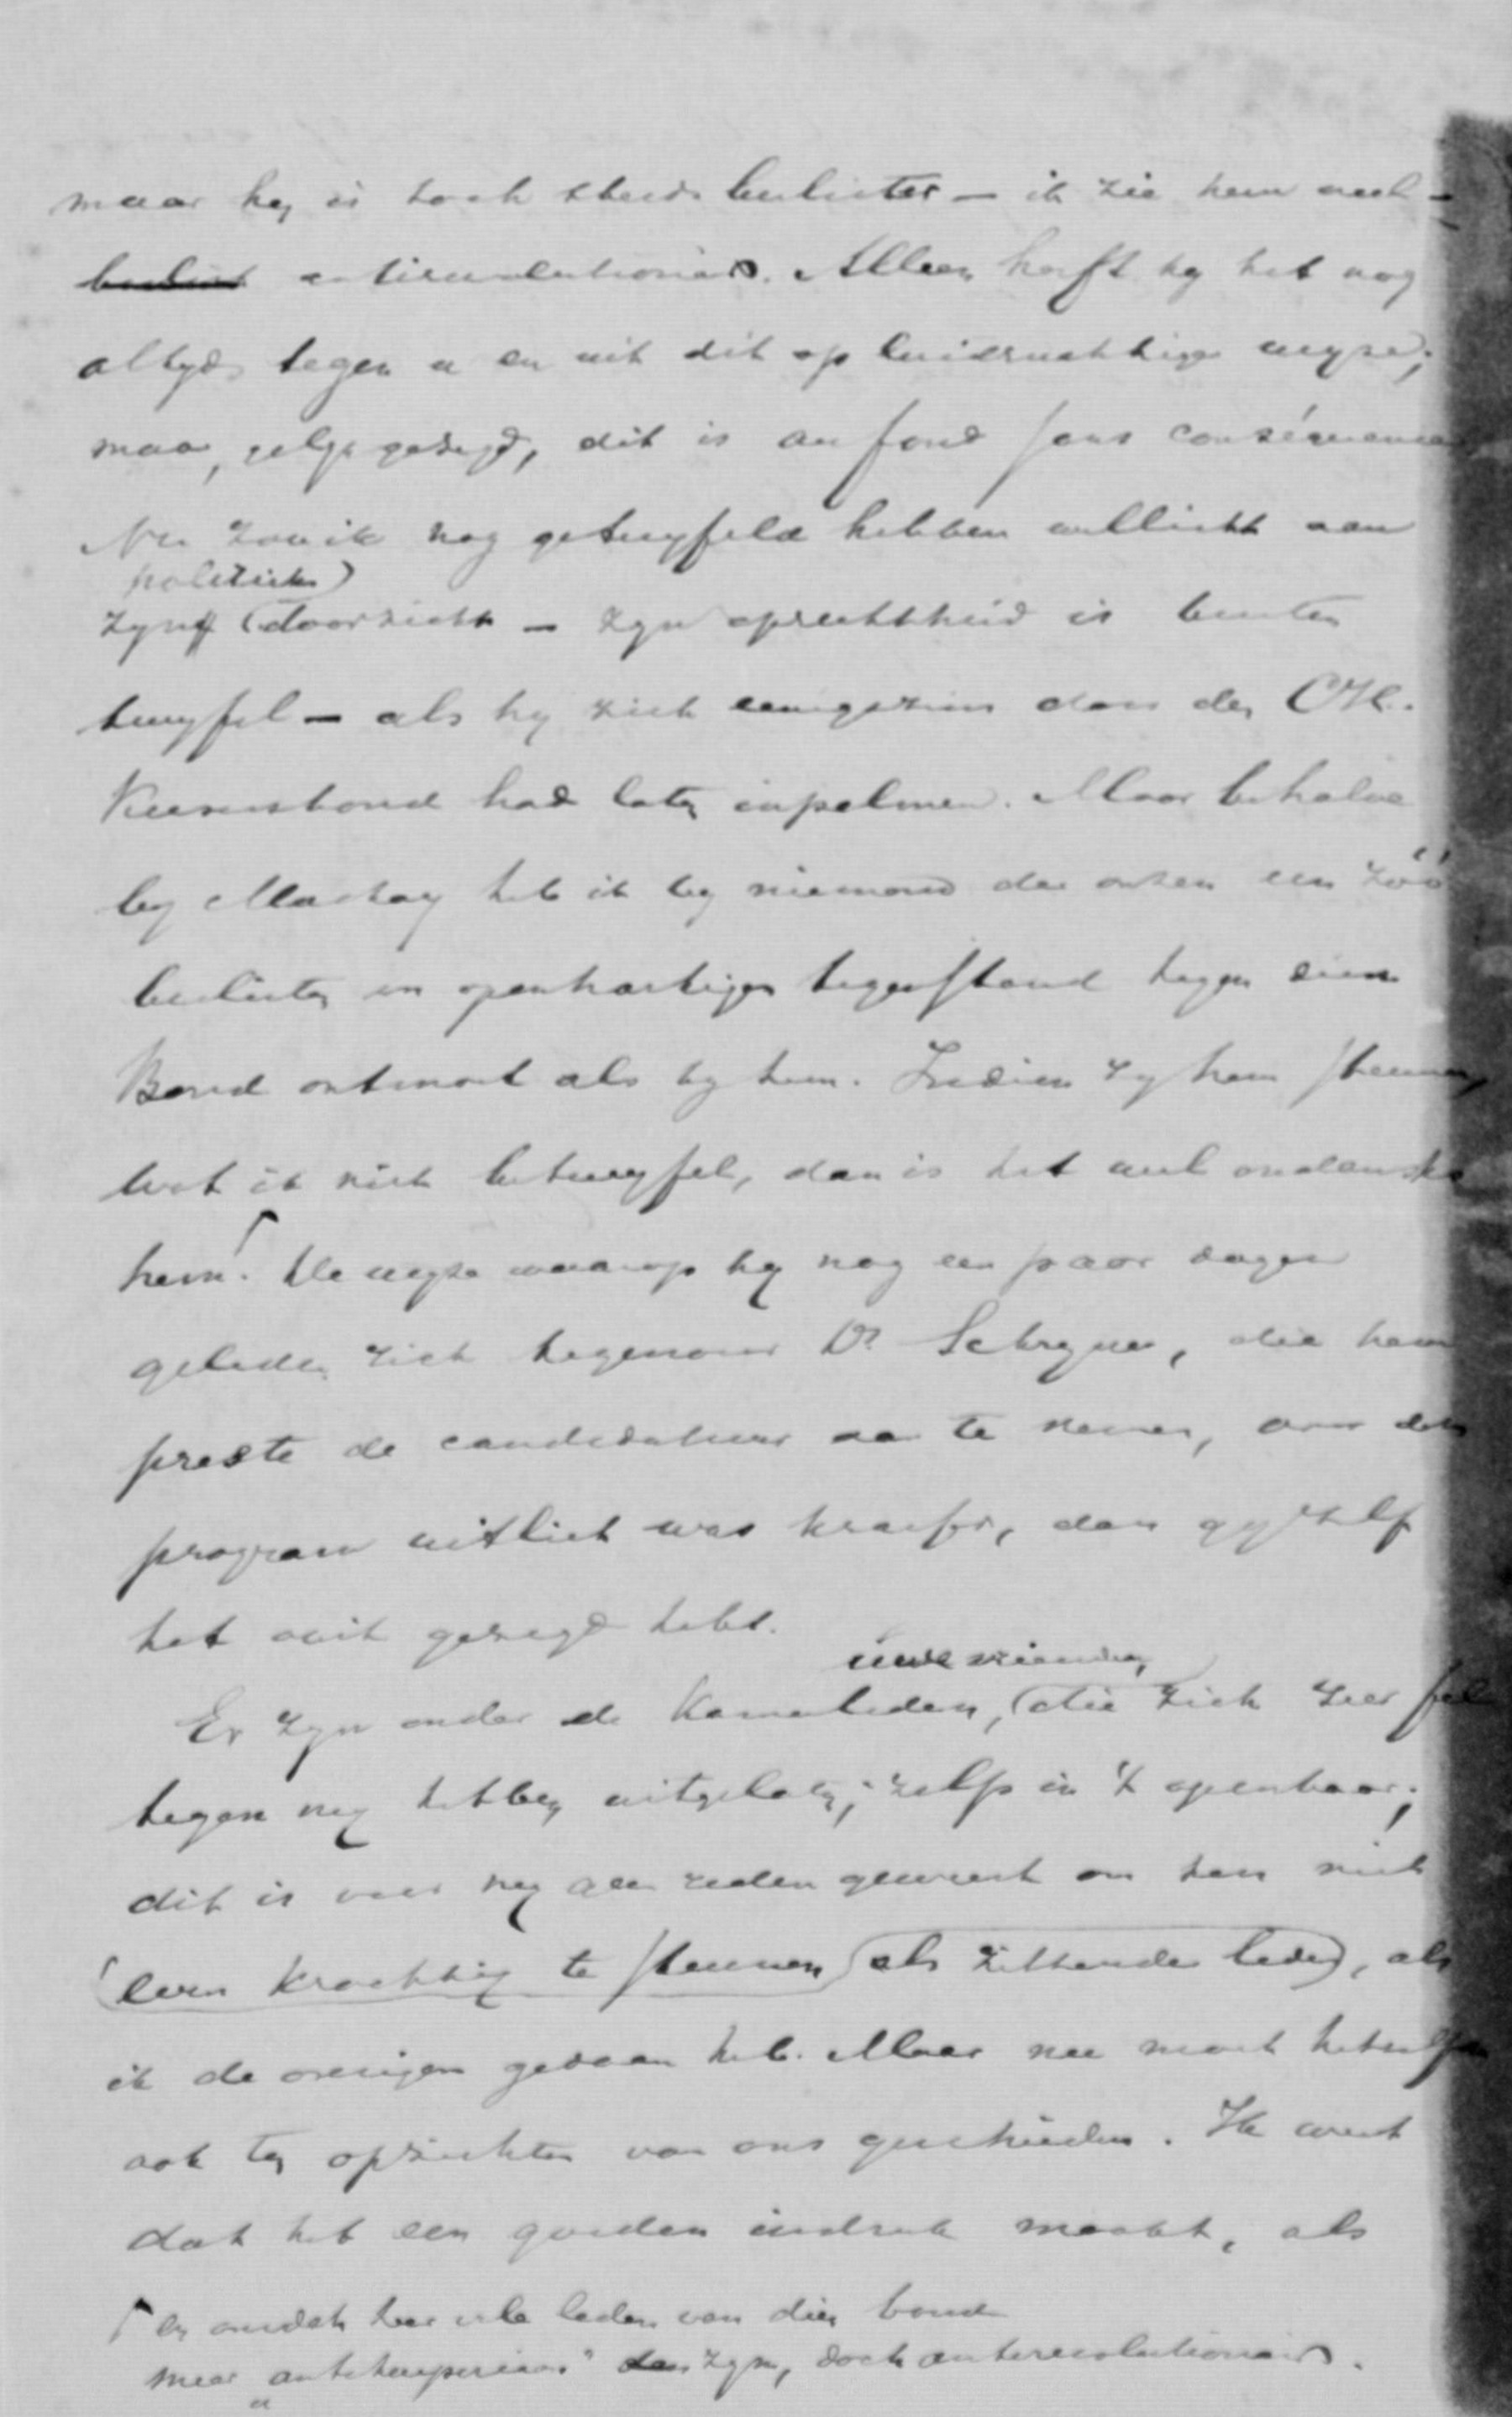 maar hy is toch steeds beslister — ik zie hem wel —
beslist antirevolutionair. Alleen heeft hy het nog
altyd tegen u en uit dit op luidruchtige wyze;
maar, gelyk gezegd, dit is au fond sans conséquence
Nu zou ik nog getwyfeld hebben wellicht aan
politiek
zyn doorzicht — zyn oprechtheid is buiten
twyfel — als hy zich eenigszins door den CH.
Kiezersbond had laten inpalmen. Maar behalve
by Mackay heb ik by niemand der onzen een zóó
beslisten en openhartigen tegenstand tegen dien
Bond ontmoet als by hem. Indien zy hem steunen,
wat ik niet betwyfel, dan is het wel ondanks
hem. De wyze waarop hy nog een paar dagen
geleden zich tegenover Dr Schryver, die hem
preste de candidatuur aan te nemen, over dat
program uitliet was krasser, dan gy zelf
het ooit gezegd hebt.
uwe vrienden
Er zyn onder de Kamerleden, die zich zeer fel
tegen my hebben uitgelaten, zelfs in 't openbaar;
dit is voor my geen reden geweest om hen niet
even krachtig te steunen als zittende leden, als
ik de overigen gedaan heb. Maar nu moet hetzelfde
ook ten opzichte van ons geschieden. Ik weet
dat het een goeden indruk maakt, als
en omdat hier vele leden van dien bond
meer "antikuyperiaan" dan zyn, doch antirevolutionair.